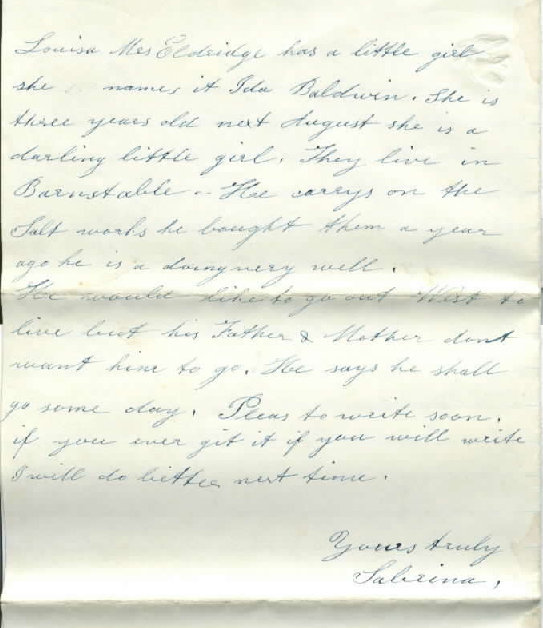 Louisa Mrs Eldridge has a little girl
she names it Ida Baldwin. She is
three years old next August she is a
darling little girl. They live in
Barnstable - He carrys on the
Salt works he bought them a year
ago he is a doing very well.
He would like to go out West to
live but his Father & Mother dont
want him to go. He says he shall
go some day. Pleas to write soon.
if you ever git it if you will write
I will do better next time.
Yours truly
Sabrina,